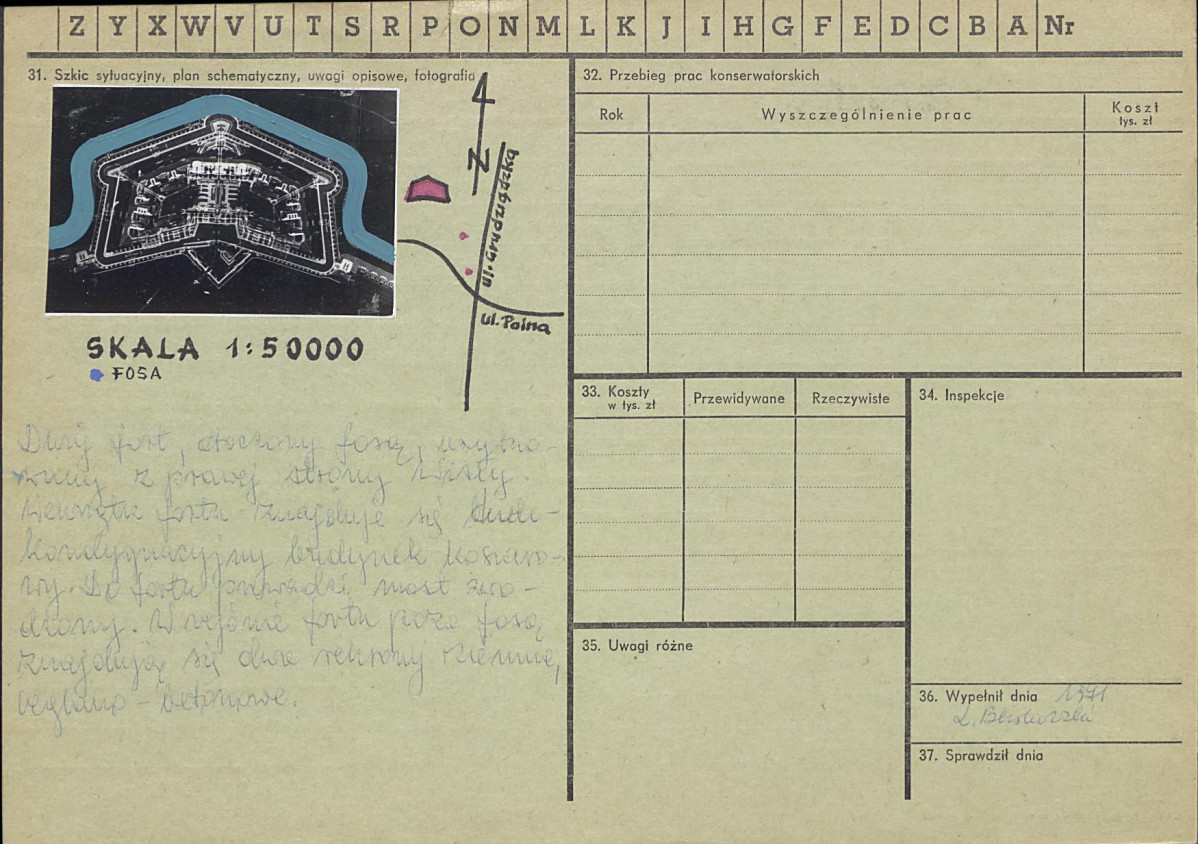 Z Y X W V U T S R P O N M L K J I H G F E D C B A Nr
31. Szkic sytuacyjny, plan schematyczny, uwagi opisowe, fotografia
N
ul. Grudziądzką
ul. Polna
SKALA 1:50000
FOSA
Duży fort, otoczony fosą, usytuo-
wany z prawej strony Wisły.
Wewnątrz fortu znajduje się
kondygnacyjny budynek koszaro-
wy. Do fortu prowadzi most zwo-
dzony. W rejonie fortu poza fosą
znajdują się dwa schrony ziemne,
ceglano - betonowe.
32. Przebieg prac konserwatorskich
Rok Wyszczególnienie prac Koszt
tys. zł
33. Koszty
w tys. zł
Przewidywane Rzeczywiste
34. Inspekcje
35. Uwagi różne
36. Wypełnił dnia 1971
37. Sprawdził dnia